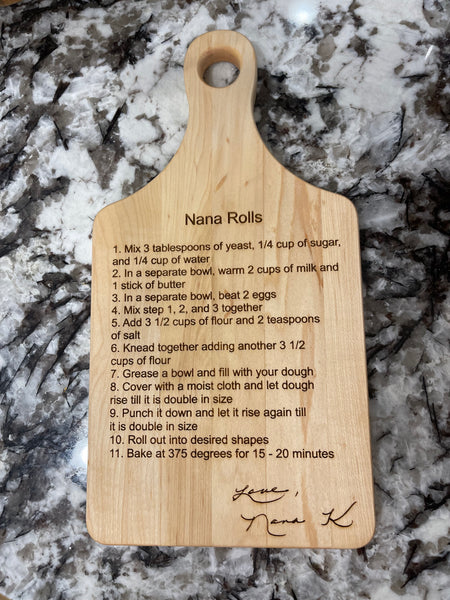 Nana Rolls
1. Mix 3 tablespoons of yeast, 1/4 cup of sugar,
and 1/4 cup of water
2. In a separate bowl, warm 2 cups of milk and
1 stick of butter
3. In a separate bowl, beat 2 eggs
4. Mix step 1, 2, and 3 together
5. Add 3 1/2 cups of flour and 2 teaspoons
of salt
6. Knead together adding another 3 1/2
cups of flour
7. Grease a bowl and fill with your dough
8. Cover with a moist cloth and let dough
rise till it is double in size
9. Punch it down and let it rise again till
it is double in size
10. Roll out into desired shapes
11. Bake at 375 degrees for 15 - 20 minutes
Love,
Nana K